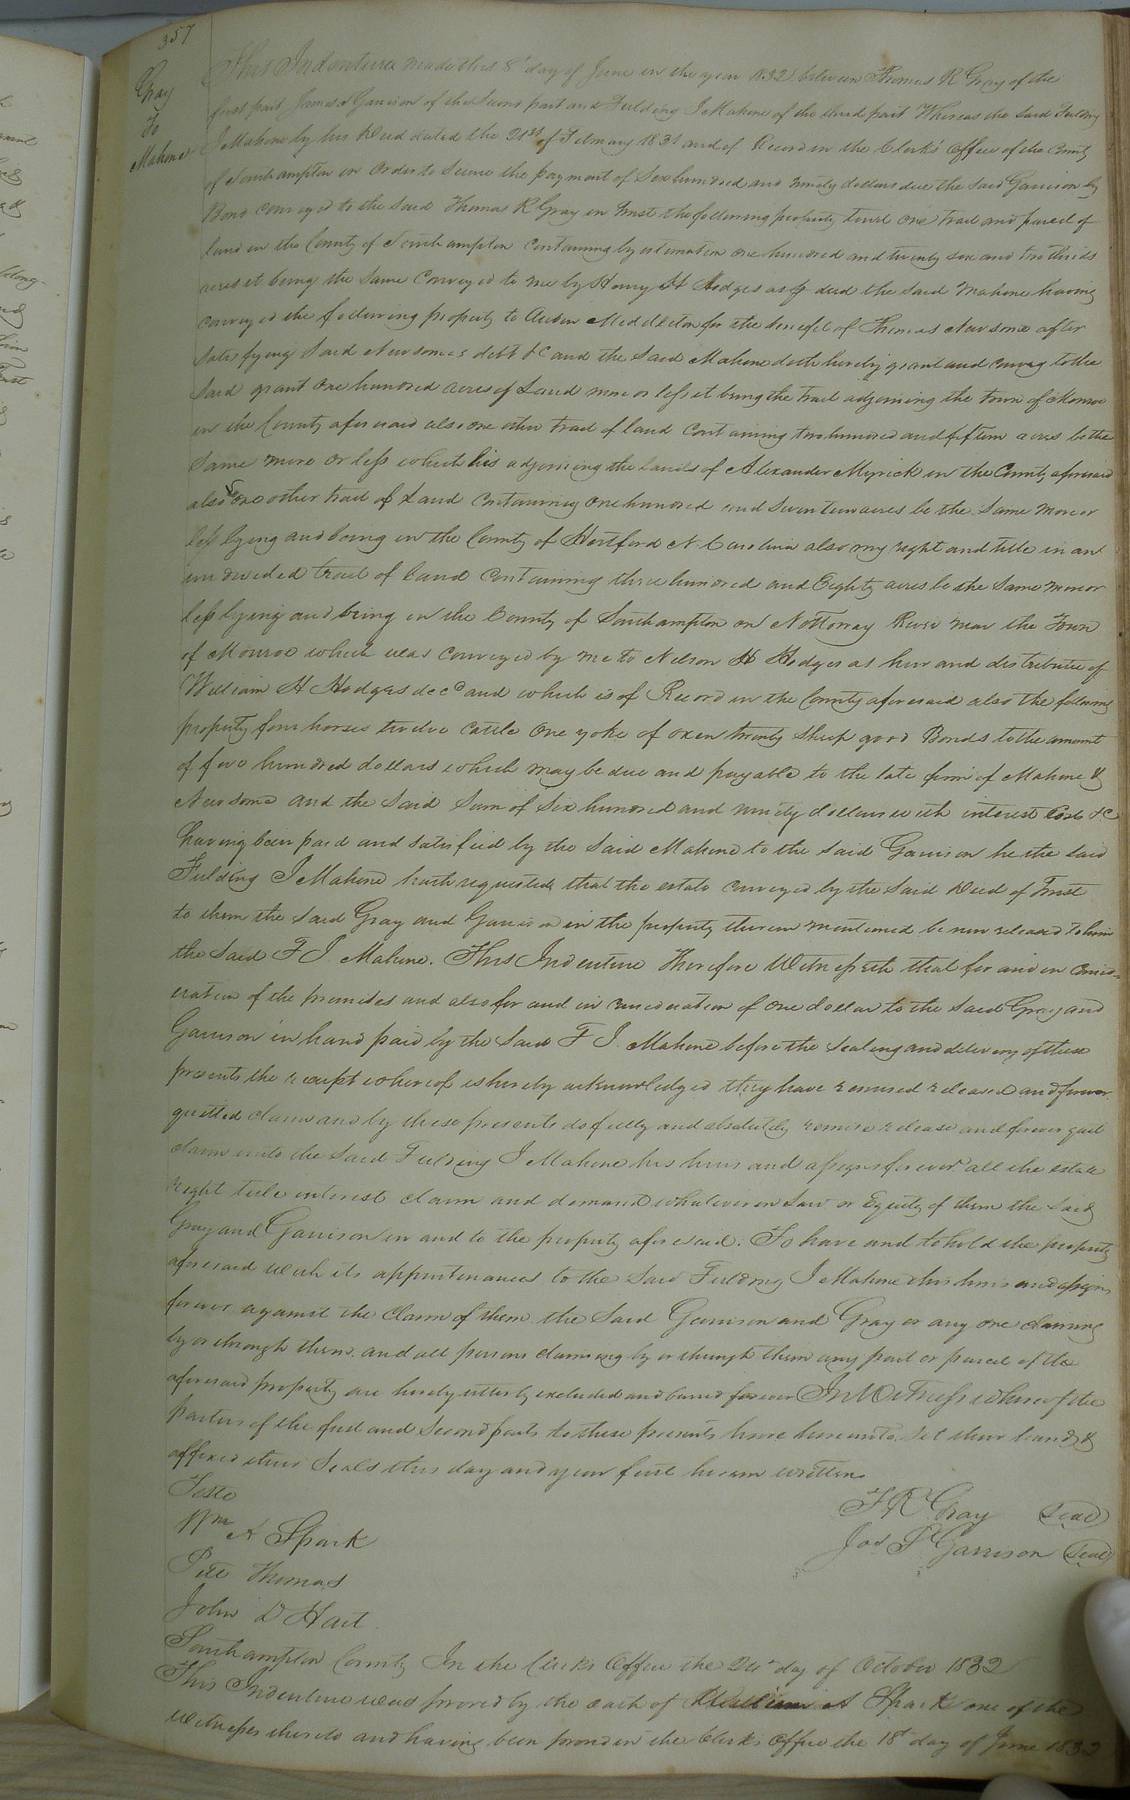 357
Gray
To
Mahone
This Indenture made this 8th day of June in the year 1832 between Thomas R Gray of the
first part James Garrison of the Second part and Fielding J Mahone of the third part Whereas the said Fielding
J Mahone by his Deed dated the 21st of February 1831 and of Record in the Clerk's Office of the County
of Southampton in order to Secure the payment of Six hundred and ninety dollars due the said Garrison by
Bond conveyed to the said Thomas R Gray in trust the following property to wit One tract and parcel of
land in the County of Southampton containing by estimation one hundred and twenty six and two thirds
acres it being the same conveyed to me by Henry H Hodges as deed the said Mahone having
conveyed the following property to Auson Middleton for the benefit of Thomas Newsome after
satisfying said Newsomes debt &c and the said Mahone doth hereby grant and convey to the
said grant one hundred acres of Land more or less it being the tract adjoining the town of Monroe
in the County aforesaid also one other tract of land containing two hundred and fifteen acres be the
same more or less which his adjoining the lands of Alexander Myrick in the County aforesaid
also one other tract of Land containing one hundred and Seventeen acres be the same more or
less lying and being in the County of Hertford N. Carolina also my right and title in an
un devided tract of land containing three hundred and Eighty acres be the same more or
less lying and being in the County of Southampton on Nottoway River near the Town
of Monroe which was conveyed by me to Nelson H Hodges as heir and distributee of
William H Hodges decd and which is of Record in the County aforesaid also the following
property four horses twelve cattle one yoke of oxen twenty sheep good Bonds to the amount
of five hundred dollars which may be due and payable to the late firm of Mahone &
Newsome and the said Sum of Six hundred and ninety dollars with interest Cost &c
having been paid and satisfied by the said Mahone to the said Garrison he the said
Fielding J Mahone hath requested that the estate conveyed by the said Deed of Trust
to them the said Gray and Garrison in the property therein mentioned be now released to him
the said F J Mahone. This Indenture Therefore Witnesseth that for and in consid=
eration of the premises and also for and in consideration of one dollar to the said Gray and
Garrison in hand paid by the said F J. Mahone before the sealing and delivery of these
presents the receipt whereof is hereby acknowledged they have remised released and forever
quitted claim and by these presents do fully and absolutely remise release and forever quit
claim unto the said Fielding J Mahone his heirs and assigns forever all the estate
right title interest claim and demand whatever in Law or Equity of them the said
Gray and Garrison in and to the property aforesaid. To have and to hold the property
aforesaid with its appurtenances to the said Fielding J Mahone his heirs and assigns
forever against the claim of them the said Garrison and Gray or any one claiming
by or through them and all persons claiming by or through them any part or parcel of the
aforesaid property are hereby utterly excluded and barred forever In Witness whereof the
parties of the first and second parts to these presents have hereunto set their hands &
affixed their Seals this day and year first herein written
Teste
T R Gray Seal
Wm A Spark
Jas P Garrison Seal
Pitt Thomas
John D Hart
Southampton County In the Clerk's Office the 24th day of October 1832
This Indenture was proved by the oath of William A Spark one of the
witnesses thereto and having been proved in the Clerk's Office the 18th day of June 1832